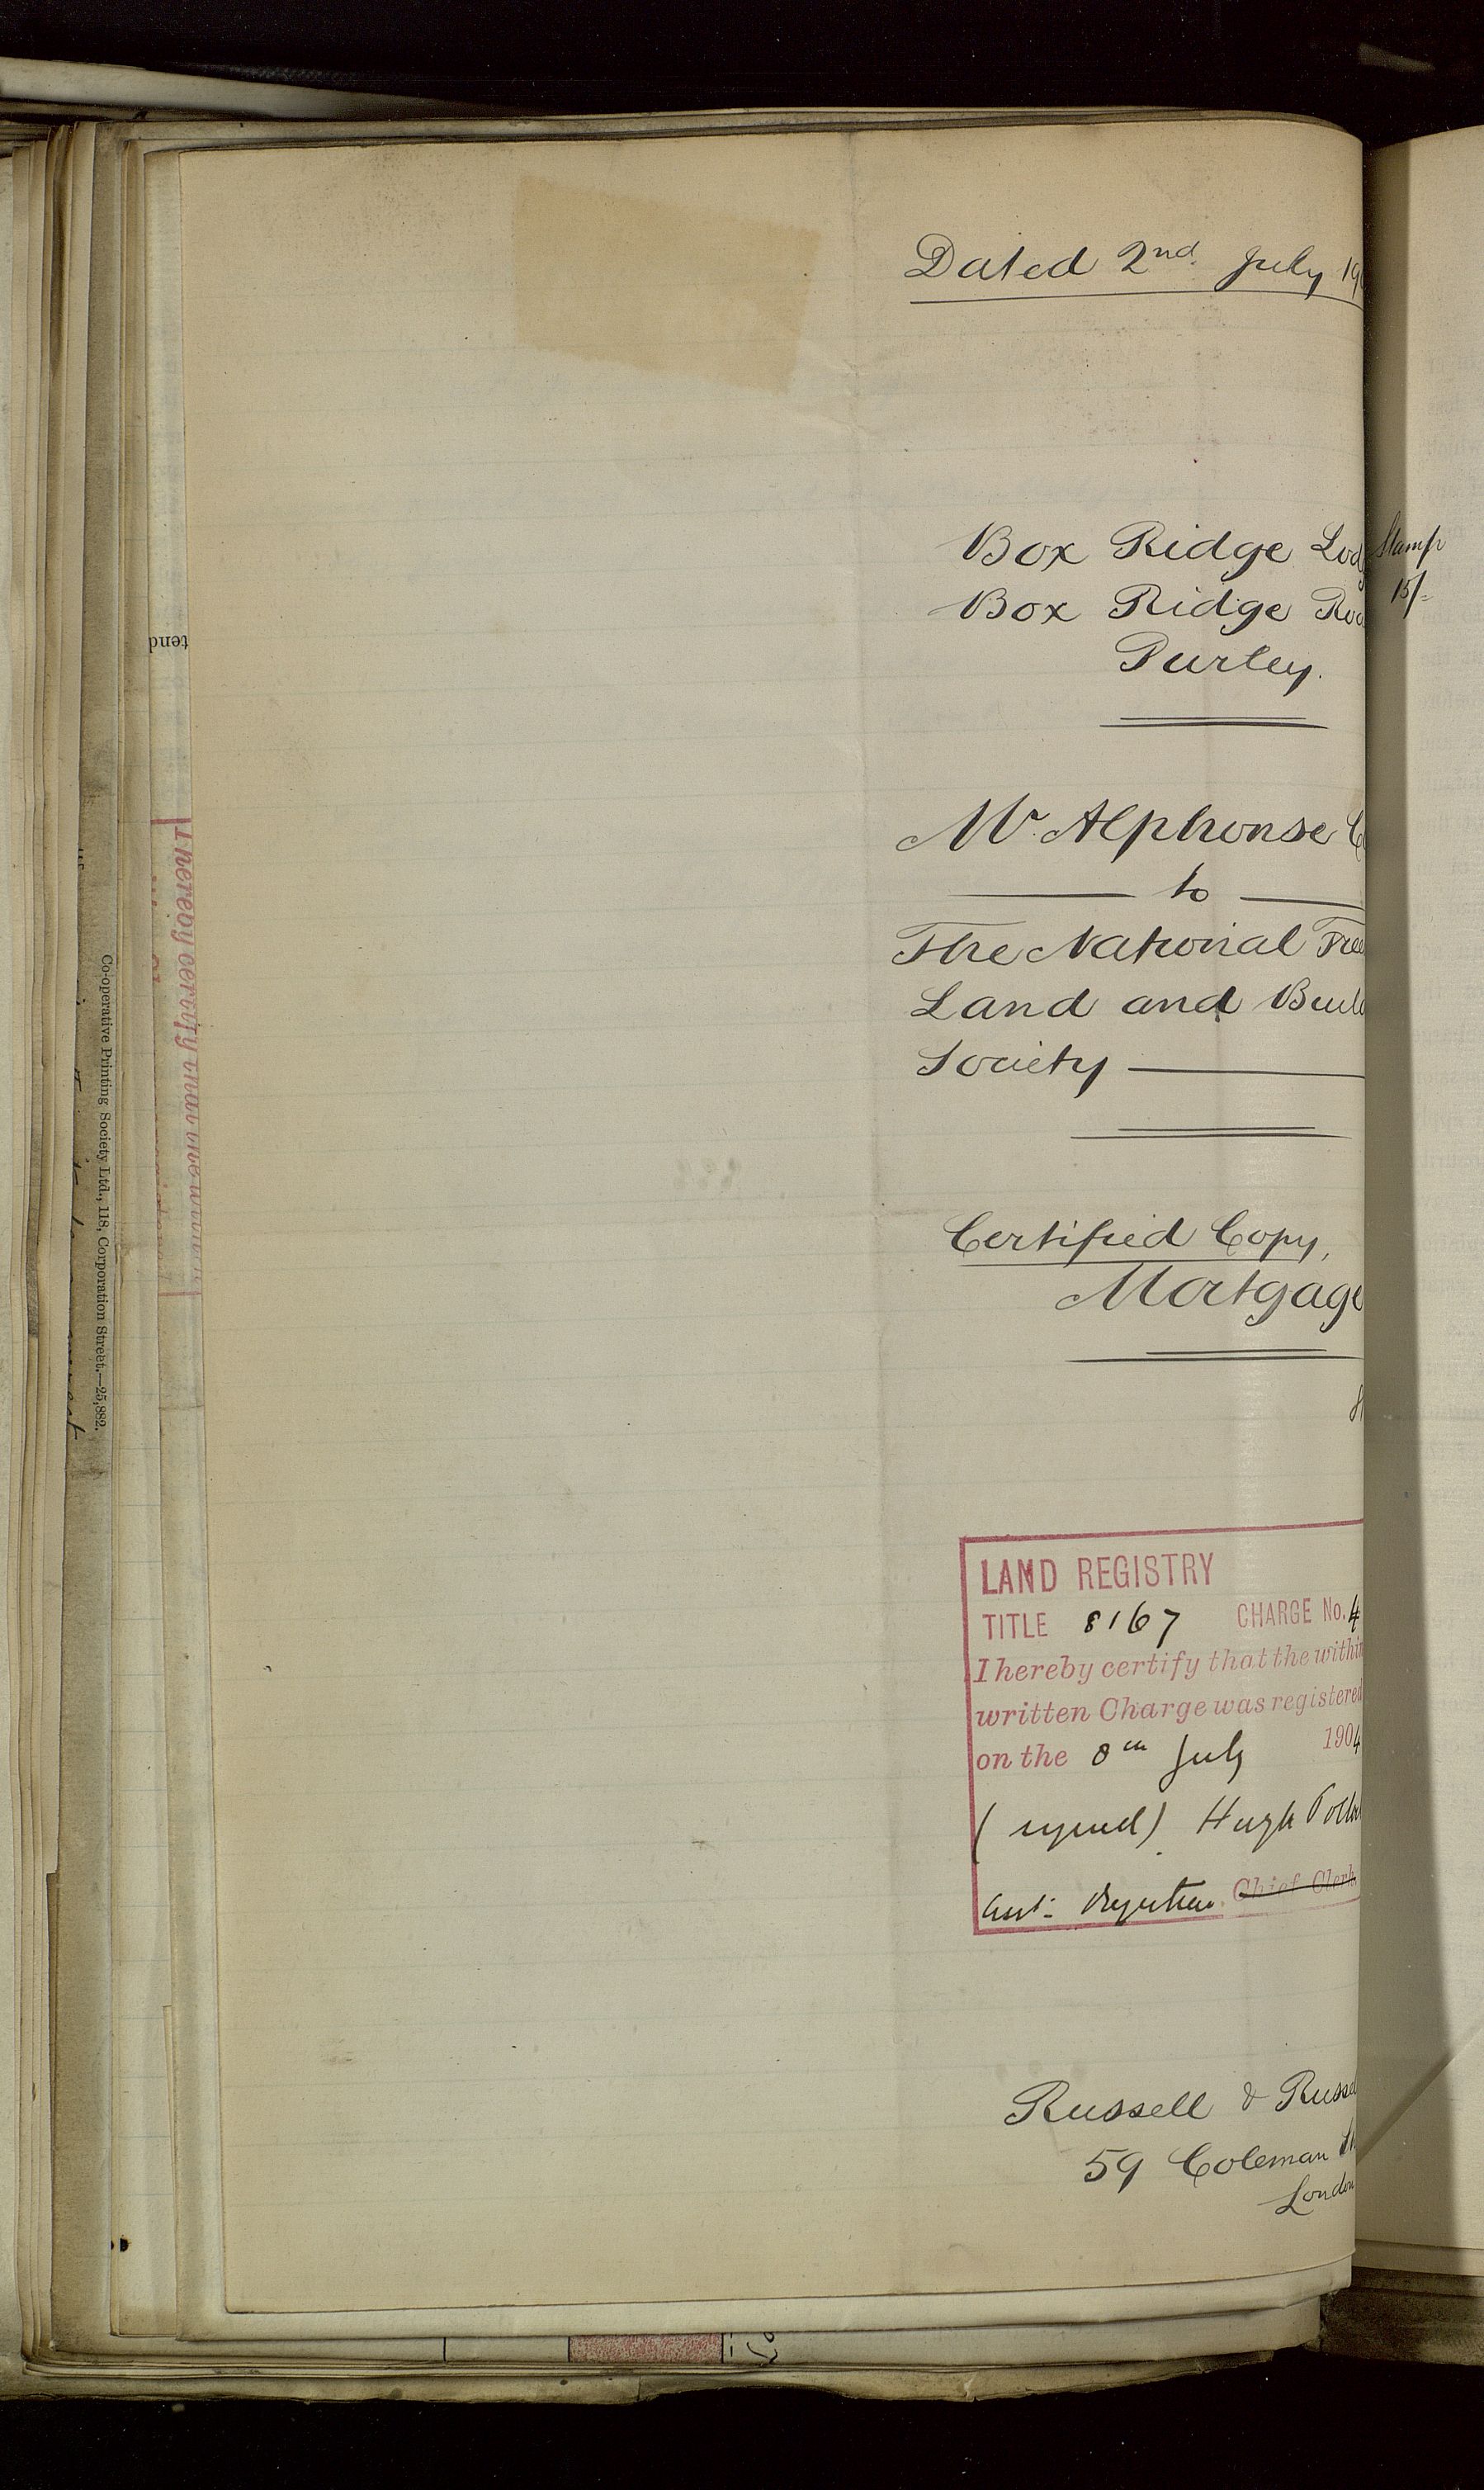 Dated 2nd July 19
Box Ridge Lod
Box Ridge Roa
Purley.
Mr. Alphonse C
to
The National Free
Land and Build
Society
Certified Copy,
Mortgage
LAND REGISTRY
TITLE 8167 CHARGE No. 4
I hereby certify that the within
written Charge was registered
on the 8th July 1904
(signed) Hugh Pollo
Asst. Registrar Chief Clerk
Russell & Russel
59 Coleman St
London
Stamp
15/-
tend
I hereby certify that the within
Co-operative Printing Society Ltd., 118, Corporation Street.—25,882.